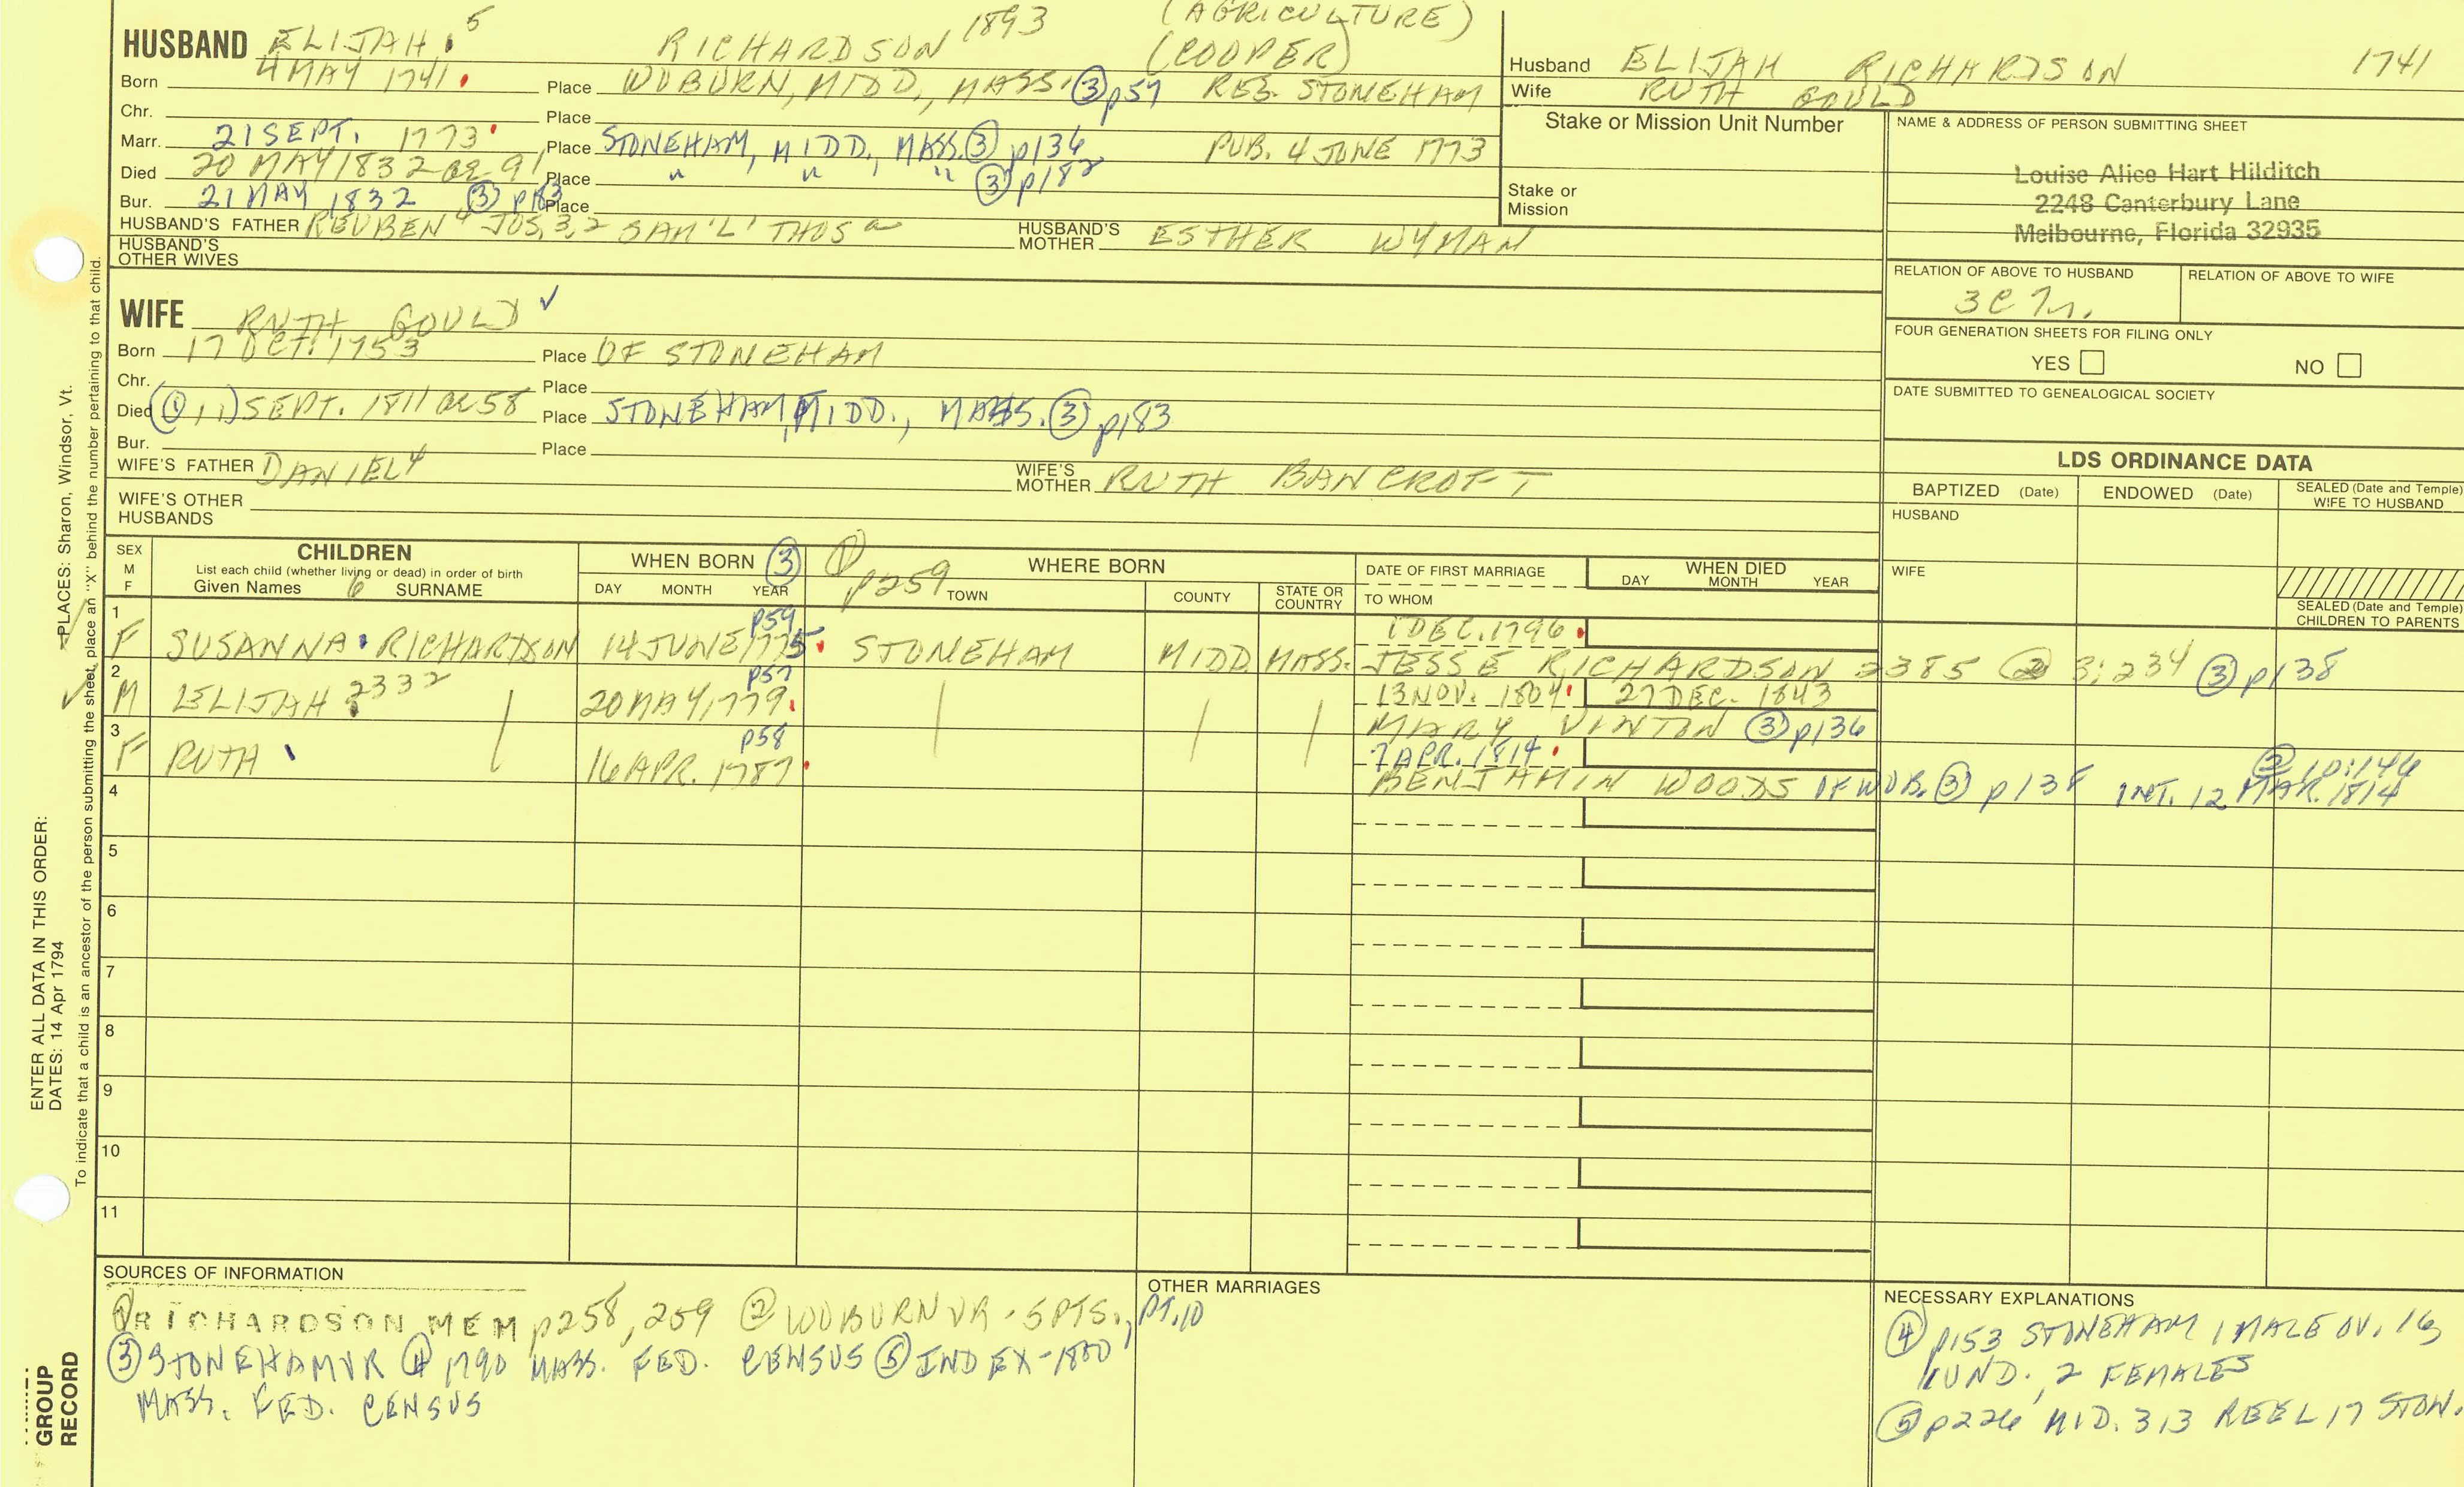 (AGRICULTURE)
HUSBAND ELIJAH 5 RICHARDSON 1893 (COOPER)
Born 4 MAY 1741 Place WOBURN, MIDD., MASS. ③ p57 RES. STONEHAM
Chr. Place
Marr. 21 SEPT. 1773 Place STONEHAM, MIDD., MASS. ③ p136 PUB. 4 JUNE 1773
Died 20 MAY 1832 ae 91 Place " " , " ③ p182
Bur. 21 MAY 1832 ③ p183 Place
HUSBAND'S FATHER REUBEN 4 JOS. 3, 2 SAM'L' THOS a HUSBAND'S MOTHER ESTHER WYMAN
HUSBAND'S OTHER WIVES
Husband ELIJAH RICHARDSON 1741
Wife RUTH GOULD
Stake or Mission Unit Number
Stake or Mission
NAME & ADDRESS OF PERSON SUBMITTING SHEET
Louise Alice Hart Hilditch
2248 Canterbury Lane
Melbourne, Florida 32935
RELATION OF ABOVE TO HUSBAND RELATION OF ABOVE TO WIFE
FOUR GENERATION SHEETS FOR FILING ONLY
YES NO
DATE SUBMITTED TO GENEALOGICAL SOCIETY
WIFE RUTH GOULD ✓
Born 17 OCT. 1753 Place OF STONEHAM
Chr. Place
Died (① 11) SEPT. 1811 ae 58 Place STONEHAM, MIDD., MASS. ③ p183
Bur. Place
WIFE'S FATHER DANIEL 4 WIFE'S MOTHER RUTH BANCROFT
WIFE'S OTHER HUSBANDS
LDS ORDINANCE DATA
BAPTIZED (Date) ENDOWED (Date) SEALED (Date and Temple) WIFE TO HUSBAND
HUSBAND
WIFE
SEALED (Date and Temple) CHILDREN TO PARENTS
SEX M F
CHILDREN
List each child (whether living or dead) in order of birth
Given Names 6 SURNAME
WHEN BORN ③
DAY MONTH YEAR
① p259 WHERE BORN
TOWN COUNTY STATE OR COUNTRY
DATE OF FIRST MARRIAGE
TO WHOM
WHEN DIED
DAY MONTH YEAR
1 F SUSANNA RICHARDSON 14 JUNE 1775 p59 STONEHAM MIDD MASS. 1 DEC. 1796
JESSE RICHARDSON 2385 ② 3:234 ③ p138
2 M ELIJAH 2332 20 MAY, 1779 p57 13 NOV. 1804 27 DEC. 1843
MARY VINTON ③ p136
3 F RUTH 16 APR. 1787 p58 7 APR. 1814
BENJAMIN WOODS OF WOB. ③ p138 INT. 12 MAR. 1814 ② 10:146
4
5
6
7
8
9
10
11
SOURCES OF INFORMATION
① RICHARDSON MEM p258, 259 ② WOBURN VR - 5 PTS., PT. 10
③ STONEHAM VR ④ 1790 MASS. FED. CENSUS ⑤ INDEX-1800
MASS. FED. CENSUS
OTHER MARRIAGES
NECESSARY EXPLANATIONS
④ p153 STONEHAM 1 MALE OV. 16
1 UND., 2 FEMALES
⑤ p226 MID. 313 REEL 17 STON.
PLACES: Sharon, Windsor, Vt.
To indicate that a child is an ancestor of the person submitting the sheet, place an "X" behind the number pertaining to that child.
ENTER ALL DATA IN THIS ORDER:
DATES: 14 Apr 1794
GROUP
RECORD